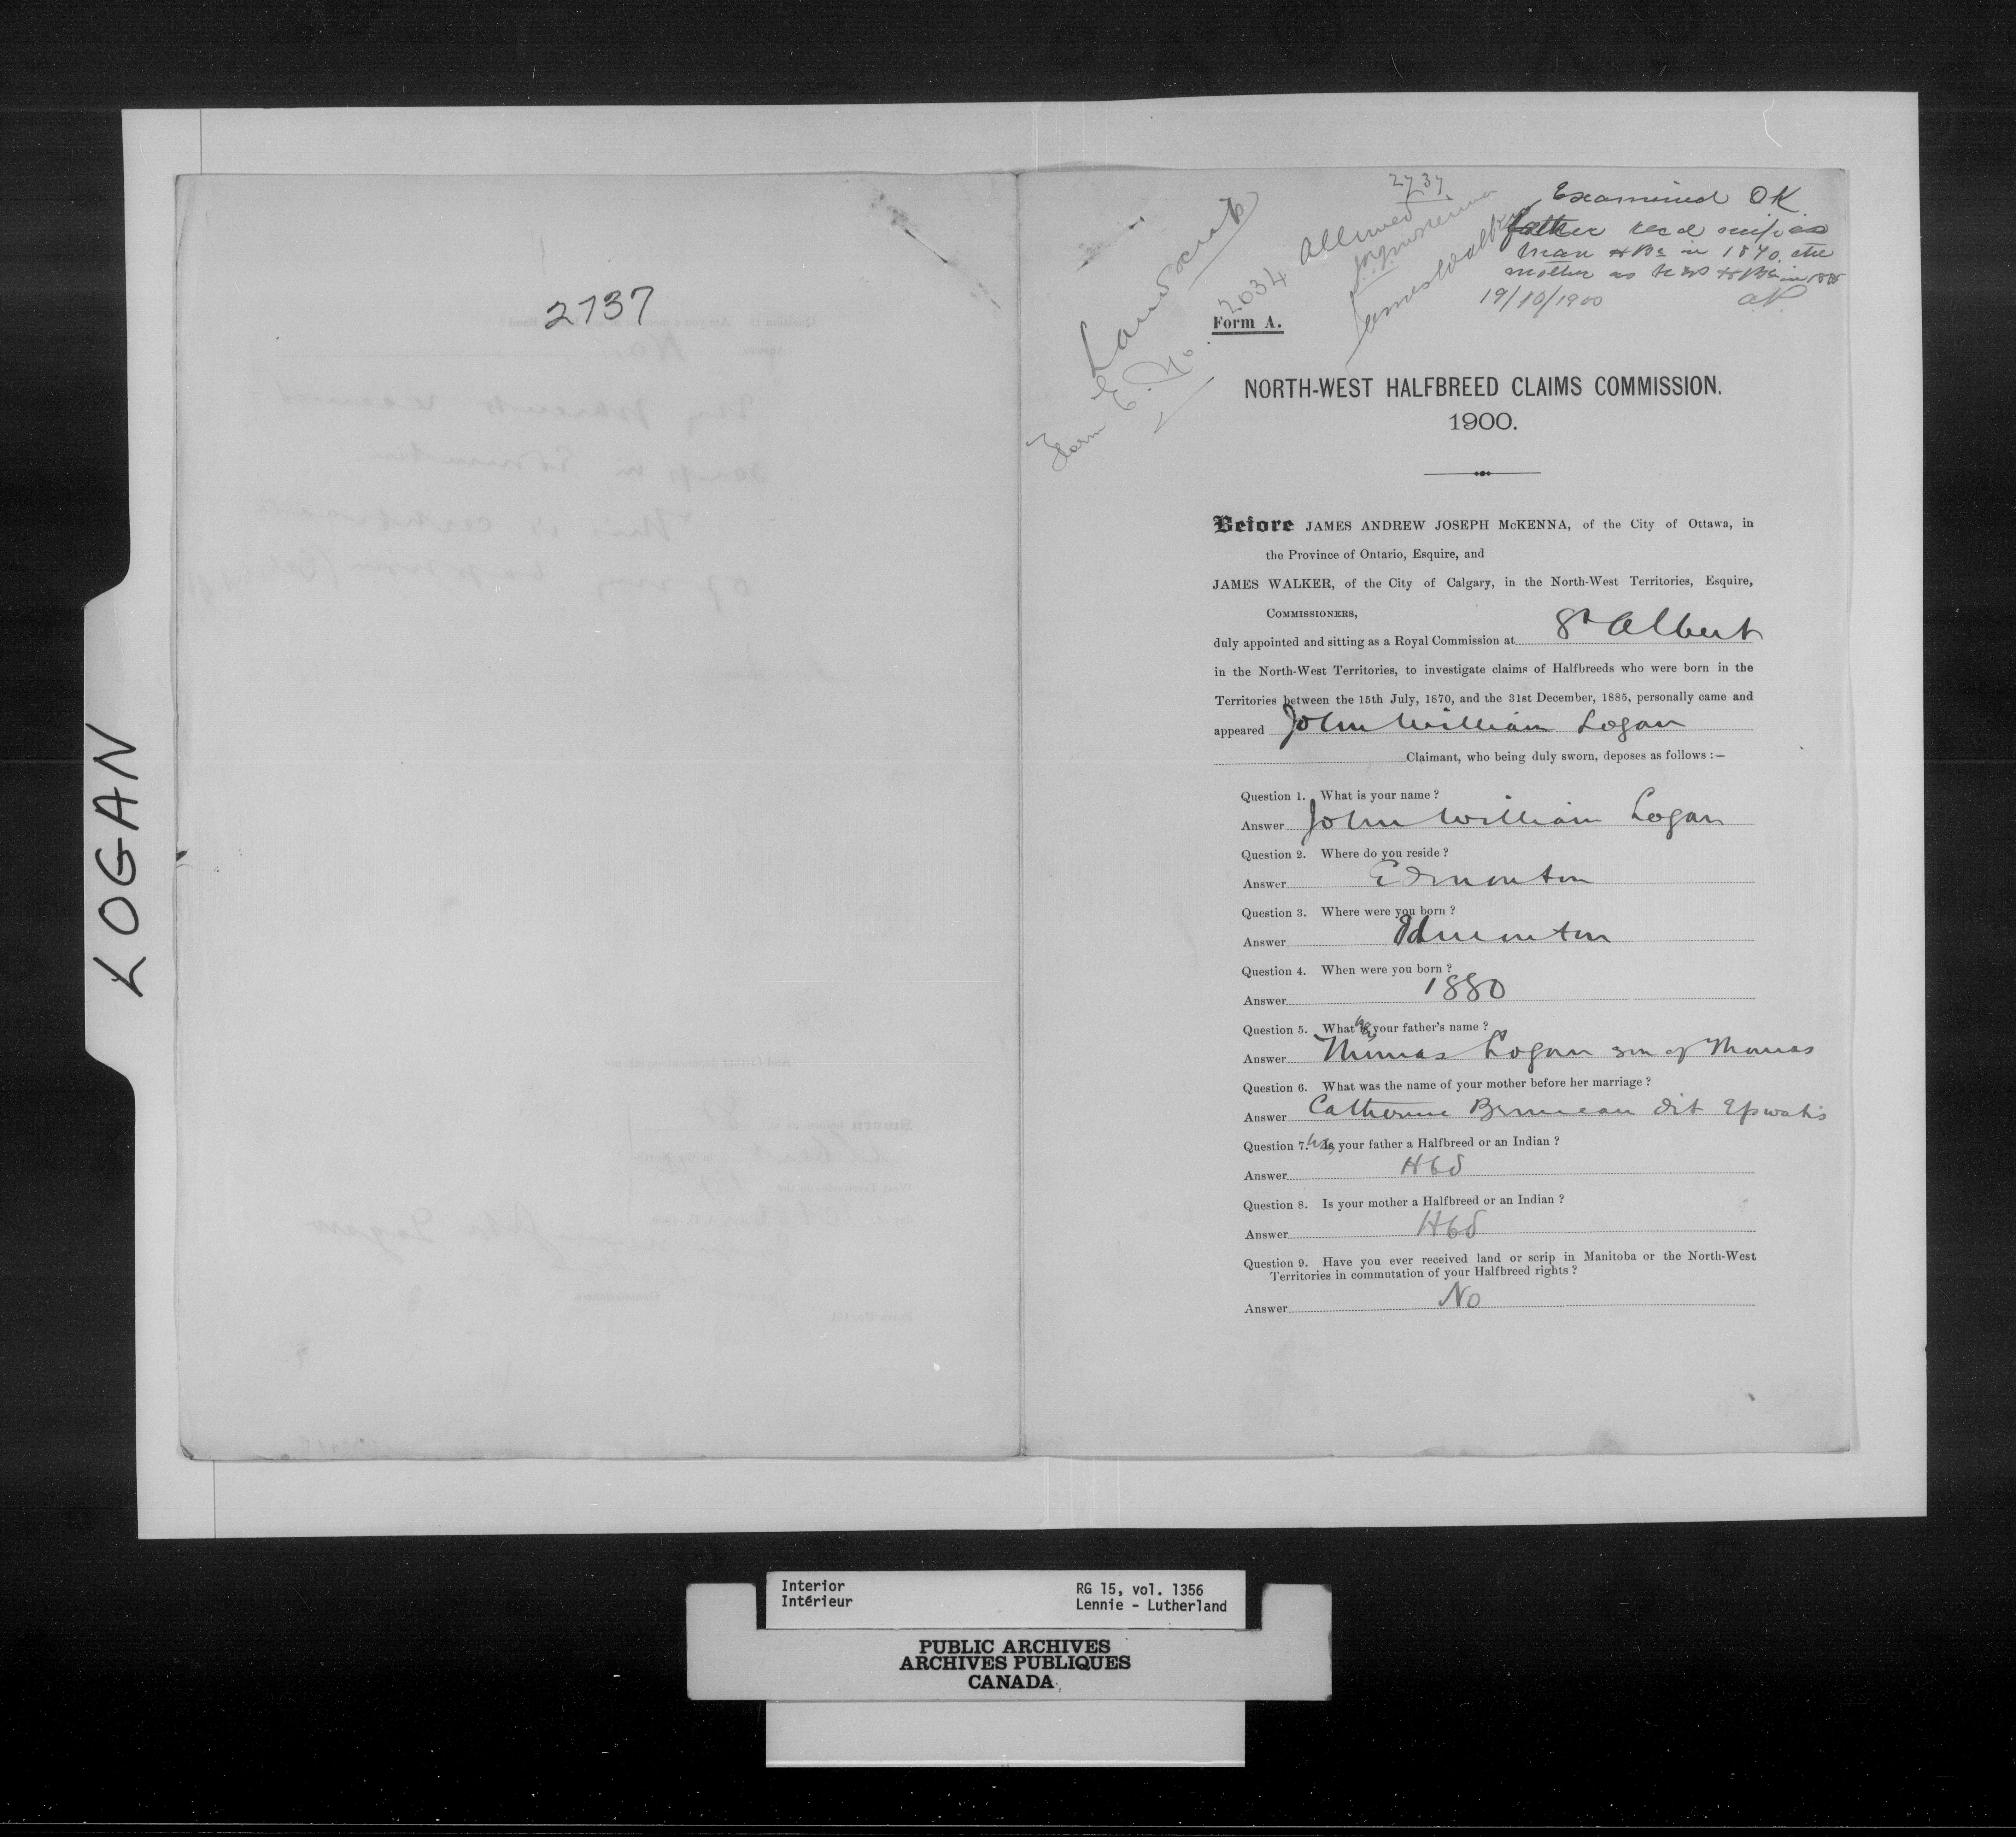 LOGAN
2737
Land scrip
Form E. No. 2034
2737
Allowed
James Walker
Examined OK
father recd scrip as
Man HBd in 1870, the
mother as N W HBd in 1885
19/10/1900
Form A.
NORTH-WEST HALFBREED CLAIMS COMMISSION.
1900.
Before JAMES ANDREW JOSEPH McKENNA, of the City of Ottawa, in
the Province of Ontario, Esquire, and
JAMES WALKER, of the City of Calgary, in the North-West Territories, Esquire,
COMMISSIONERS,
duly appointed and sitting as a Royal Commission at St Albert
in the North-West Territories, to investigate claims of Halfbreeds who were born in the
Territories between the 15th July, 1870, and the 31st December, 1885, personally came and
appeared John William Logan
Claimant, who being duly sworn, deposes as follows :—
Question 1. What is your name ?
Answer John William Logan
Question 2. Where do you reside ?
Answer Edmonton
Question 3. Where were you born ?
Answer Edmonton
Question 4. When were you born ?
Answer 1880
Question 5. What was your father's name ?
Answer Thomas Logan son of Thomas
Question 6. What was the name of your mother before her marriage ?
Answer Catherine Bruneau dit Epwatis
Question 7. Was your father a Halfbreed or an Indian ?
Answer Hbd
Question 8. Is your mother a Halfbreed or an Indian ?
Answer Hbd
Question 9. Have you ever received land or scrip in Manitoba or the North-West
Territories in commutation of your Halfbreed rights ?
Answer No
Interior
Intérieur
RG 15, vol. 1356
Lennie - Lutherland
PUBLIC ARCHIVES
ARCHIVES PUBLIQUES
CANADA